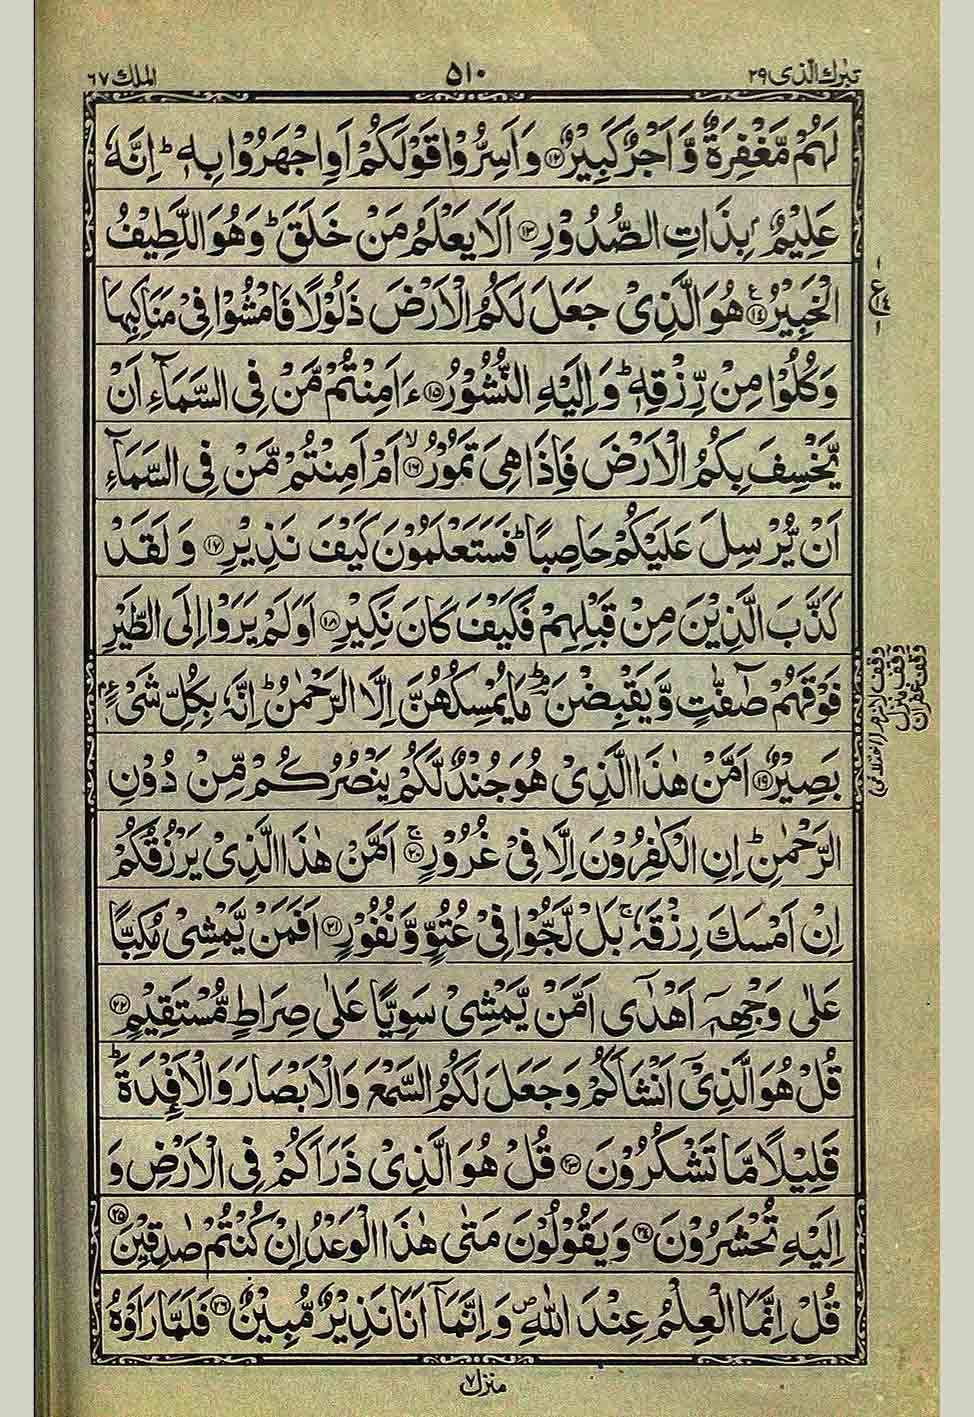 تبٰرك الذی ٢٩
٥١٠
الملك ٦٧
لَهُمْ مَّغْفِرَةٌ وَّ اَجْرٌ كَبِيْرٌ ﴿١٢﴾ وَ اَسِرُّوْا قَوْلَكُمْ اَوِ اجْهَرُوْا بِهٖ ؕ اِنَّهٗ
عَلِيْمٌۢ بِذَاتِ الصُّدُوْرِ ﴿١٣﴾ اَلَا يَعْلَمُ مَنْ خَلَقَ ؕ وَ هُوَ اللَّطِيْفُ
الْخَبِيْرُ ﴿١٤﴾ هُوَ الَّذِىْ جَعَلَ لَكُمُ الْاَرْضَ ذَلُوْلًا فَامْشُوْا فِىْ مَنَاكِبِهَا
وَ كُلُوْا مِنْ رِّزْقِهٖ ؕ وَ اِلَيْهِ النُّشُوْرُ ﴿١٥﴾ ءَاَمِنْتُمْ مَّنْ فِى السَّمَآءِ اَنْ
يَّخْسِفَ بِكُمُ الْاَرْضَ فَاِذَا هِىَ تَمُوْرُ ۙ﴿١٦﴾ اَمْ اَمِنْتُمْ مَّنْ فِى السَّمَآءِ
اَنْ يُّرْسِلَ عَلَيْكُمْ حَاصِبًا ؕ فَسَتَعْلَمُوْنَ كَيْفَ نَذِيْرِ ﴿١٧﴾ وَ لَقَدْ
كَذَّبَ الَّذِيْنَ مِنْ قَبْلِهِمْ فَكَيْفَ كَانَ نَكِيْرِ ﴿١٨﴾ اَوَلَمْ يَرَوْا اِلَى الطَّيْرِ
فَوْقَهُمْ صٰٓفّٰتٍ وَّ يَقْبِضْنَ ؔؕ مَا يُمْسِكُهُنَّ اِلَّا الرَّحْمٰنُ ؕ اِنَّهٗ بِكُلِّ شَىْءٍۢ
بَصِيْرٌ ﴿١٩﴾ اَمَّنْ هٰذَا الَّذِىْ هُوَ جُنْدٌ لَّكُمْ يَنْصُرُكُمْ مِّنْ دُوْنِ
الرَّحْمٰنِ ؕ اِنِ الْكٰفِرُوْنَ اِلَّا فِىْ غُرُوْرٍ ۚ﴿٢٠﴾ اَمَّنْ هٰذَا الَّذِىْ يَرْزُقُكُمْ
اِنْ اَمْسَكَ رِزْقَهٗ ۚ بَلْ لَّجُّوْا فِىْ عُتُوٍّ وَّ نُفُوْرٍ ﴿٢١﴾ اَفَمَنْ يَّمْشِىْ مُكِبًّا
عَلٰى وَجْهِهٖۤ اَهْدٰٓى اَمَّنْ يَّمْشِىْ سَوِيًّا عَلٰى صِرَاطٍ مُّسْتَقِيْمٍ ﴿٢٢﴾
قُلْ هُوَ الَّذِىْۤ اَنْشَاَكُمْ وَ جَعَلَ لَكُمُ السَّمْعَ وَ الْاَبْصَارَ وَ الْاَفْـِٕدَةَ ؕ
قَلِيْلًا مَّا تَشْكُرُوْنَ ﴿٢٣﴾ قُلْ هُوَ الَّذِىْ ذَرَاَكُمْ فِى الْاَرْضِ وَ
اِلَيْهِ تُحْشَرُوْنَ ﴿٢٤﴾ وَ يَقُوْلُوْنَ مَتٰى هٰذَا الْوَعْدُ اِنْ كُنْتُمْ صٰدِقِيْنَ ﴿٢٥﴾
قُلْ اِنَّمَا الْعِلْمُ عِنْدَ اللّٰهِ ۪ وَ اِنَّمَاۤ اَنَا نَذِيْرٌ مُّبِيْنٌ ﴿٢٦﴾ فَلَمَّا رَاَوْهُ
وقف لازم (اختلافی)
وقف منزل
وقف غفران
منزل ٧